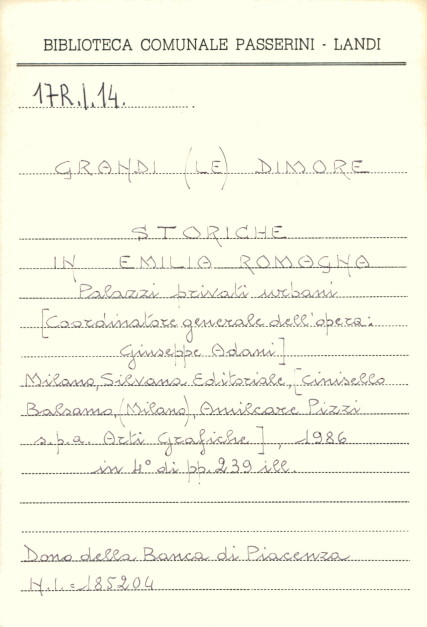 BIBLIOTECA COMUNALE PASSERINI - LANDI
17R.I.14.
GRANDI (LE) DIMORE
STORICHE
IN EMILIA ROMAGNA
Palazzi privati urbani
[Coordinatore generale dell'opera:
Giuseppe Adani]
Milano, Silvana Editoriale, [Cinisello
Balsamo, (Milano), Amilcare Pizzi
s.p.a. Arti Grafiche], 1986
in 4° di pp. 239 ill.
Dono della Banca di Piacenza
N.I.=185204